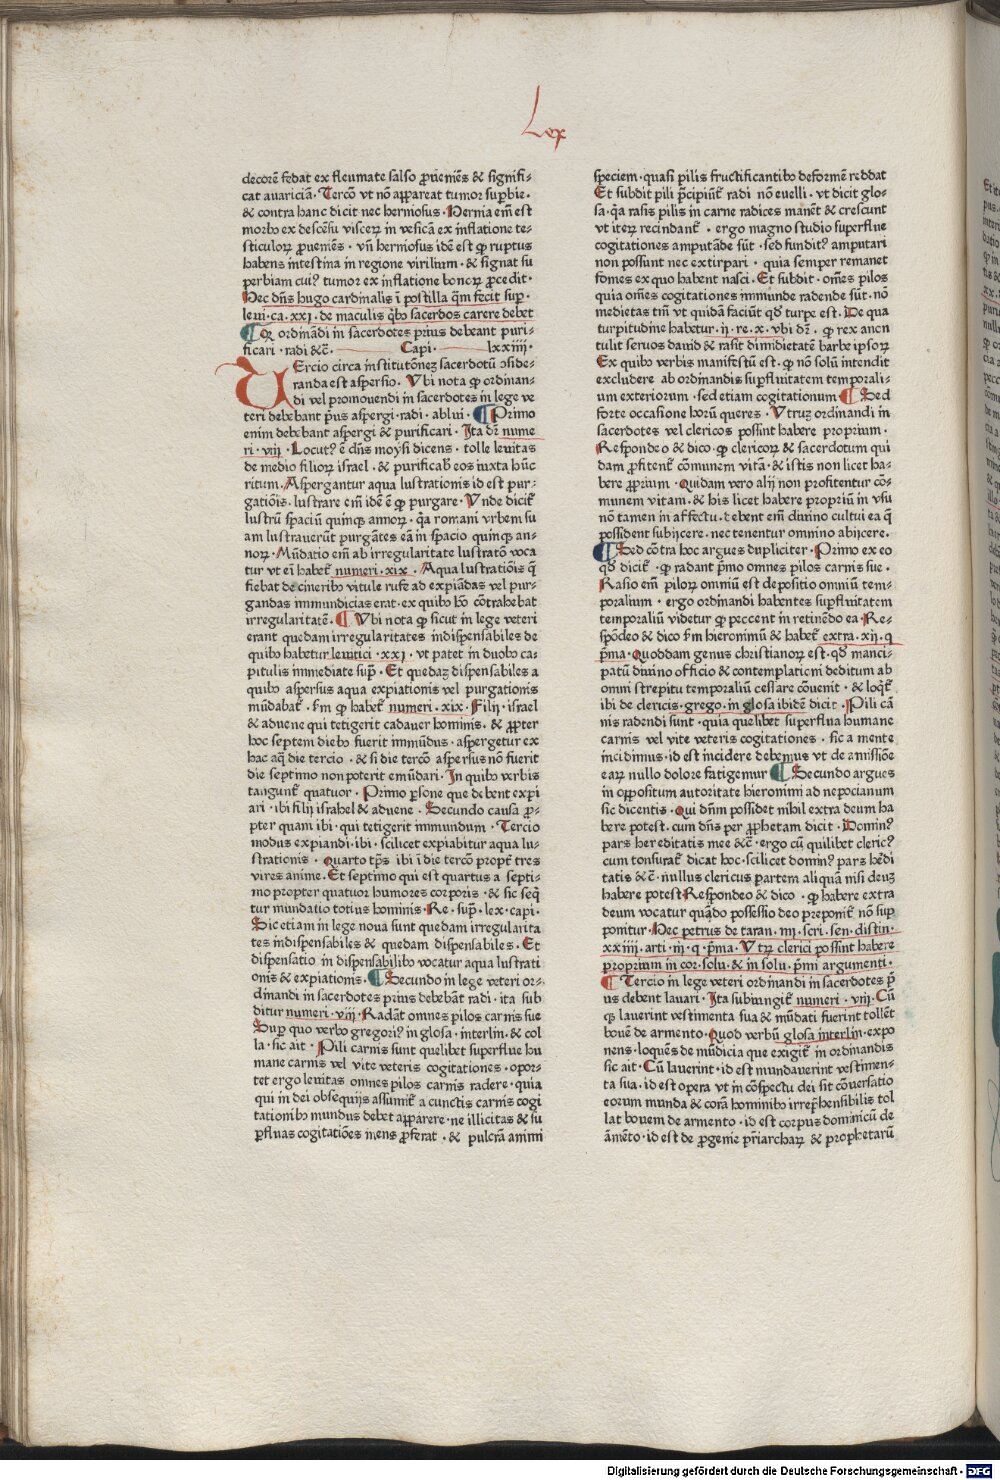 Lex
decorē fedat ex fleumate salso ꝓueniēs & signifi-
cat auariciā. Tercō vt nō appareat tumor suꝑbie.
& contra hanc dicit nec herniosus. Hernia em̄ est
morbꝰ ex descēsu visceꝝ in vesicā ex inflatione te-
sticuloꝝ ꝓueniēs. vn̄ herniosus idē est ꝙ ruptus
habens intestina in regione virilium. & signat su
perbiam cuiꝰ tumor ex inflatione bonoꝝ ꝓcedit.
Hec dn̄s hugo cardinalis ī postilla q̄m fecit suꝑ.
leui. ca. xxi. de maculis q̄bꝰ sacerdos carere debet
¶ Qꝙ ordinādi in sacerdotes prius debeant puri-
ficari. radi &c̄. Capi. lxxiiii.
TErcio circa institutōnez sacerdotū ↄside-
randa est aspersio. Vbi nota ꝙ ordinan-
di vel promouendi in sacerdotes in lege ve
teri debebant p̄us aspergi. radi. ablui. ¶ Primo
enim debebant aspergi & purificari. Ita dꝛ nume
ri. viii. Locutꝰ ē dn̄s moysi dicens. tolle leuitas
de medio filioꝝ israel. & purificab̄ eos iuxta hūc
ritum. Aspergantur aqua lustrationis id est pur-
gatiōis. lustrare em̄ idē ē ꝙ purgare. Vnde dicit̄
lustrū spaciū quinqꝫ annoꝝ. q̄a romani vrbem su
am lustrauerūt purgātes eā in spacio quinqꝫ an-
noꝝ. Mūdatio em̄ ab irregularitate lustratō voca
tur vt ei habet̄ numeri. xix. Aqua lustratiōis q̄
fiebat de cineribꝰ vitule rufe ad expiādas vel pur-
gandas immundicias erat. ex quibꝰ hō cōtrahebat
irregularitatē. ¶ Vbi nota ꝙ sicut in lege veteri
erant quedam irregularitates indispensabiles de
quibꝰ habetur leuitici. xxi. vt patet in duobꝰ ca-
pitulis immediate sup̄. Et quedaz dispensabiles a
quibꝰ aspersus aqua expiationis vel purgationis
mūdabat̄. fm ꝙ habet̄ numeri. xix. Filij. israel
& aduene qui tetigerit cadauer hominis. & ꝓpter
hoc septem diebꝰ fuerit immūdus. aspergetur ex
hac aq̄ die tercio. & si die tercō aspersus nō fuerit
die septimo non poterit emūdari. In quibꝰ verbis
tangunt̄ quatuor. Primo ꝑsone que debent expi
ari. ibi filij israhel & aduene. Secundo causa ꝓ-
pter quam ibi. qui tetigerit immundum. Tercio
modus expiandi. ibi. scilicet expiabitur aqua lu-
strationis. Quarto tp̄s ibi ī die tercō propt̄ tres
vires anime. Et septimo qui est quartus a septi-
mo propter quatuor humores corporis. & sic seq̄
tur mundatio totius hominis. Re. sup̄. lex. capi.
Sic etiam in lege noua sunt quedam irregularita
tes indispensabiles & quedam dispensabiles. Et
dispensatio in dispensabilibꝰ vocatur aqua lustrati
onis & expiationis. ¶ Secundo in lege veteri or-
dinandi in sacerdotes prius debebāt radi. ita sub
ditur numeri. viii. Radāt omnes pilos carnis sue
Suꝑ quo verbo gregoriꝰ in glosa. interlin. & col
la. sic ait. Pili carnis sunt quelibet superflue hu
mane carnis vel vite veteris cogitationes. opor-
tet ergo leuitas omnes pilos carnis radere. quia
qui in dei obsequijs assumit̄ a cunctis carnis cogi
tationibꝰ mundus debet apparere. ne illicitas & su
ꝑfluas cogitatiōes mens ꝓferat. & pulcrā animi
speciem. quasi pilis fructificantibꝰ deformē reddat
Et subdit pili p̄cipiūt̄ radi nō euelli. vt dicit glo-
sa. q̄a rasis pilis in carne radices manēt & crescunt
vt iteꝝ recindant̄. ergo magno studio superflue
cogitationes amputāde sūt. sed funditꝰ amputari
non possunt nec extirpari. quia semper remanet
fomes ex quo habent nasci. Et subdit. om̄es pilos
quia om̄es cogitationes immunde radende sūt. nō
medietas tm̄ vt quidā faciūt qd̄ turpe est. De qua
turpitudine habetur. ij. re. x. vbi dꝛ. ꝙ rex anon
tulit seruos dauid & rasit dimidietatē barbe ipsoꝝ
Ex quibꝰ verbis manifestū est. ꝙ nō solū intendit
excludere ab ordinandis suꝑfluitatem temporali-
um exteriorum. sed etiam cogitationum ¶ Sed
forte occasione horū queres. Vtruꝫ ordinandi in
sacerdotes vel clericos possint habere proprium.
Respondeo & dico. ꝙ clericoꝝ & sacerdotum qui
dam ꝓfitent̄ cōmunem vitā. & istis non licet ha-
bere ꝓprium. Quidam vero alij non profitentur cō-
munem vitam. & his licet habere propriū in vsu
nō tamen in affectu. debent em̄ diuino cultui ea q̄
possident subijcere. nec tenentur omnino abijcere.
¶ Sed cōtra hoc argues dupliciter. Primo ex eo
qd̄ dicit̄. ꝙ radant p̄mo omnes pilos carnis sue.
Rasio em̄ piloꝝ omniū est depositio omniū tem-
poralium. ergo ordinandi habentes suꝑfluitatem
temporaliū videtur ꝙ peccent in retinēdo ea. Re-
spōdeo & dico fm hieronimū & habet̄ extra. xij. q
p̄ma. Quoddam genus christianoꝝ est. qd̄ manci-
patū diuino officio & contemplationi deditum ab
omni strepitu temporaliū cessare cōuenit. & loqt̄
ibi de clericis. grego. in glosa ibidē dicit. Pili cā
nis radendi sunt. quia quelibet superflua humane
carnis vel vite veteris cogitationes. sic a mente
incidimus. id est incidere debemus vt de amissiōe
eaꝝ nullo dolore fatigemur ¶ Secundo argues
in oppositum autoritate hieronimi ad nepocianum
sic dicentis. Qui dn̄m possidet nihil extra deum ha
bere potest. cum dn̄s per ꝓphetam dicit. Dominꝰ
pars hereditatis mee &c̄. ergo cū quilibet clericꝰ
cum tonsurat̄ dicat hoc. scilicet dominꝰ pars hēdi
tatis &c̄. nullus clericus partem aliquā nisi deuz
habere potest. Respondeo & dico. ꝙ habere extra
deum vocatur quādo possessio deo preponit̄ nō suꝑ
ponitur. Hec petrus de taran. iiii. scri. sen. distin.
xxiiii. arti. iij. q. p̄ma. Vtꝝ clerici possint habere
proprium in cor. solu. & in solu. p̄mi argumenti.
¶ Tercio in lege veteri ordinandi in sacerdotes p̄
us debent lauari. Ita subiungit̄ numeri. viij. Cū
qꝫ lauerint vestimenta sua & mūdati fuerint tollēt
bouē de armento. Quod verbū glosa interlin. expo
nens. loquēs de mūdicia que exigit̄ in ordinandis
sic ait. Cū lauerint. id est mundauerint vestimen-
ta sua. id est opera vt in cōspectu dei sit cōuersatio
eorum munda & corā hominibꝰ irrep̄hensibilis tol
lat bouem de armento. id est corpus dominicū de
āmēto. id est de ꝓgenie pr̄iarchaꝝ & prophetarū
Digitalisierung gefördert durch die Deutsche Forschungsgemeinschaft - DFG